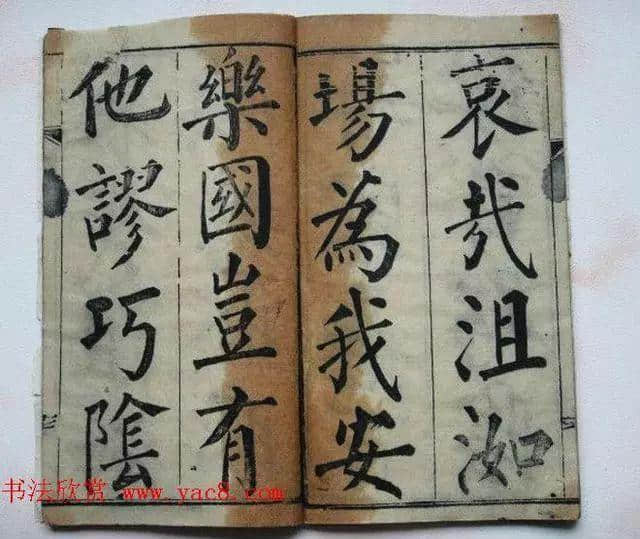 哀哉沮洳
場為我安
樂國豈有
他謬巧陰
书法欣赏 www.yac8.com